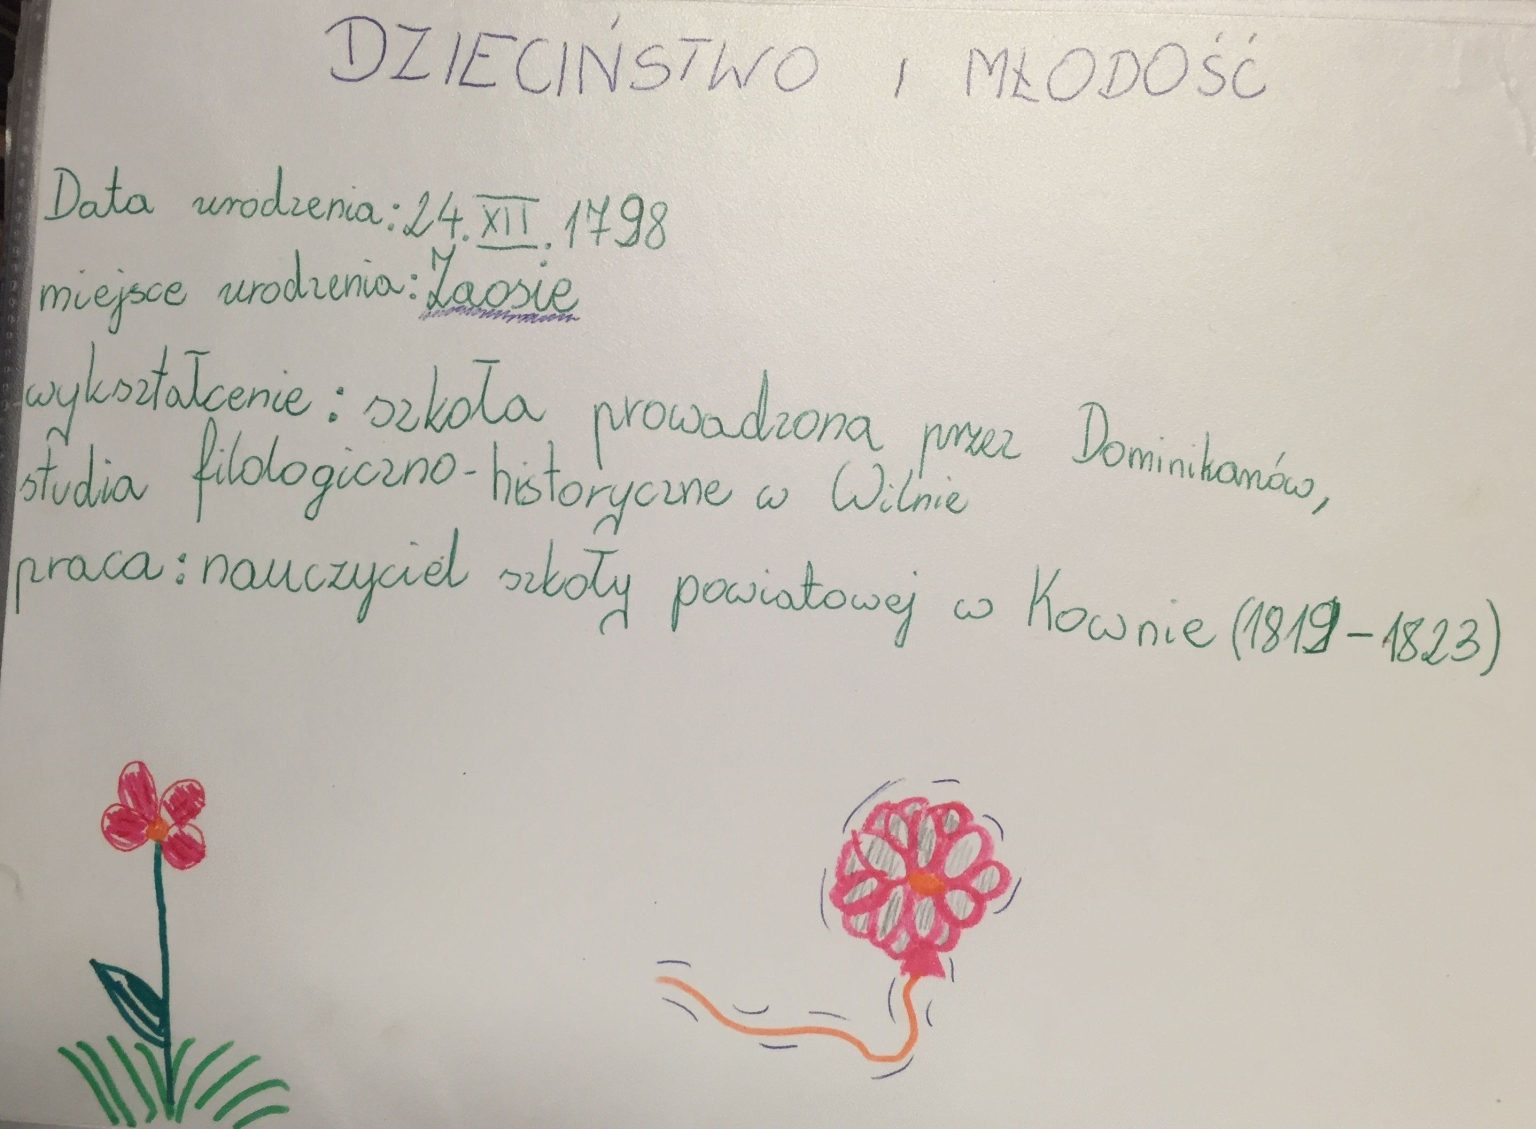 DZIECIŃSTWO I MŁODOŚĆ
Data urodzenia: 24.XII.1798
miejsce urodzenia: Zaosie
wykształcenie: szkoła prowadzona przez Dominikanów,
studia filologiczno-historyczne w Wilnie
praca: nauczyciel szkoły powiatowej w Kownie (1819-1823)